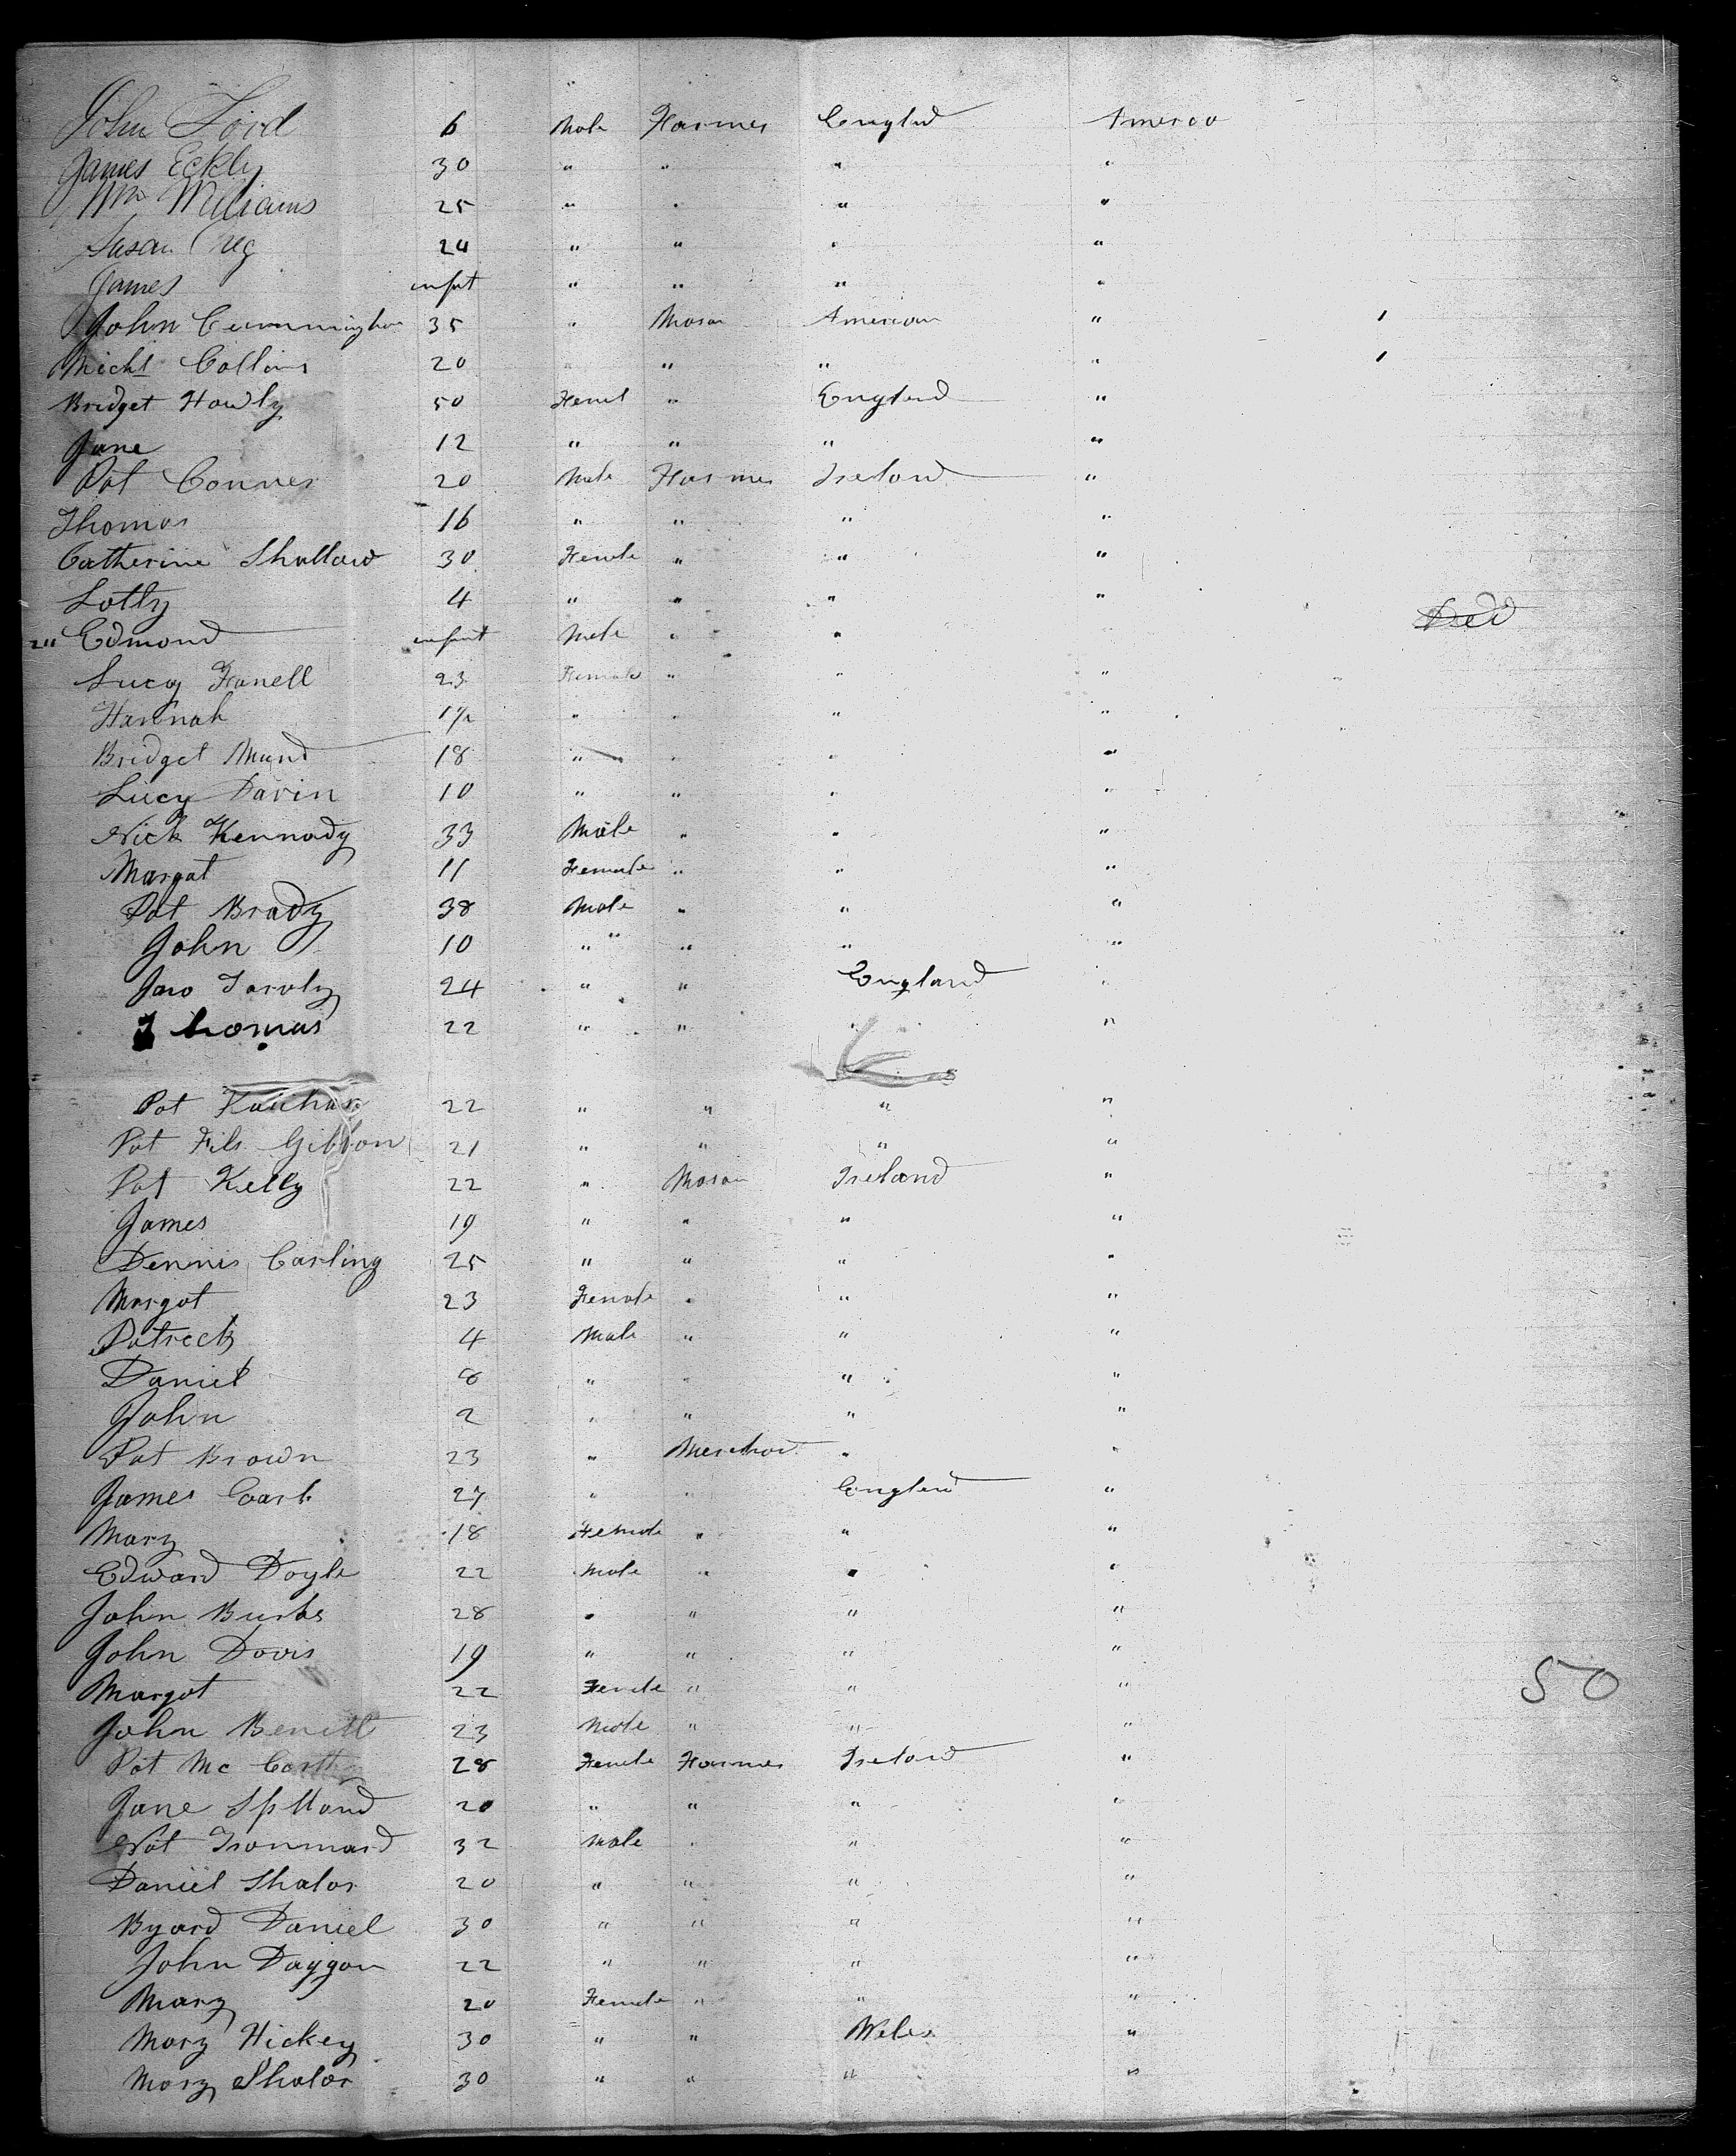 John Ford 6 Male Farmer Englnd America
James Eckly 30 " " " "
Wm Williams 25 " " " "
Susan Creg 24 " " " "
James infnt " " " "
John Cunningham 35 " Mason American " 1
Michl Collins 20 " " " " 1
Bridget Howly 50 Femel " England "
Jane 12 " " " "
Pat Conner 20 Male Farmer Ireland "
Thomas 16 " " " "
Catherine Shallow 30 Female " " "
Lotty 4 " " " "
" Edmond infant Male " " Died
Lucy Farrell 23 Female " " "
Hannah 1½ " " " "
Bridget Mund 18 " " " "
Lucy Davin 10 " " " "
Nick Kennady 33 Male " " "
Margat 11 Female " " "
Pat Brady 38 Male " " "
John 10 " " " "
24 " " England "
Thomas 22 " " " "
Pat 22 " " " "
Pat Fits Gibbon 21 " " " "
Pat Kelly 22 " Mason Ireland "
James 19 " " " "
Dennis Carling 25 " " " "
Margat 23 Female " " "
Patrick 4 Male " " "
Daniel 8 " " " "
John 2 " " " "
Pat Brown 23 " Merchant " "
James 27 " " Englend "
Mary 18 Female " " "
Edward Doyle 22 Male " " "
John Burks 28 " " " "
John Davis 19 " " " "
Margat 22 Female " " " 50
John Benett 23 Male " " "
Pat Mc Carthy 28 Female Farmer Ireland "
Jane 20 " " " "
Nat 32 Male " " "
Daniel Shalor 20 " " " "
Byard Daniel 30 " " " "
John Daygon 22 " " " "
Mary 20 Female " " "
Mary Hickey 30 " " Weles "
Mary Shalor 30 " " " "